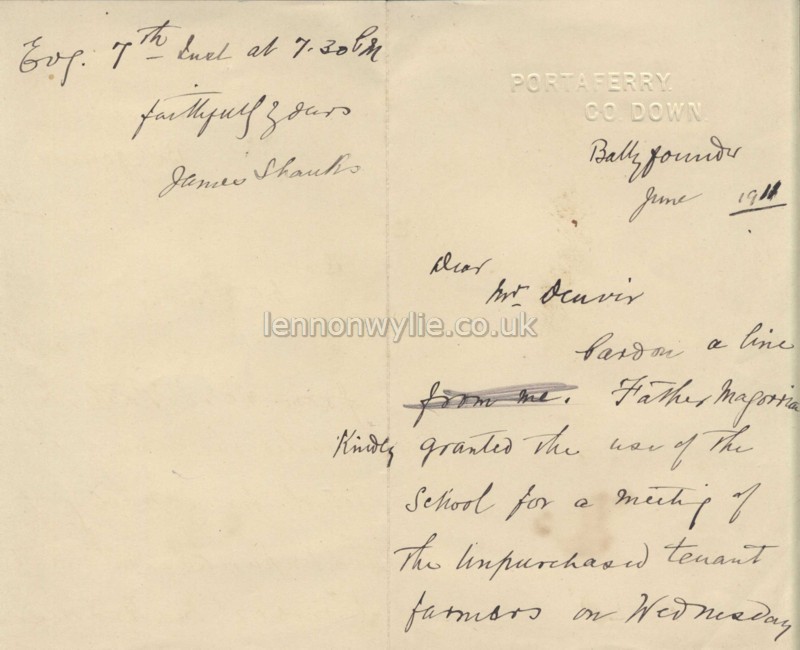 PORTAFERRY.
CO. DOWN
Ballyfounder
June 1911
Dear
Mr. Denvir
Pardon a line
from me. Father Magorrian
Kindly granted the use of the
School for a meeting of
the Unpurchased tenant
farmers on Wednesday
Evg. 7th Inst at 7.30 PM
faithfully yours
James Shanks
lennonwylie.co.uk